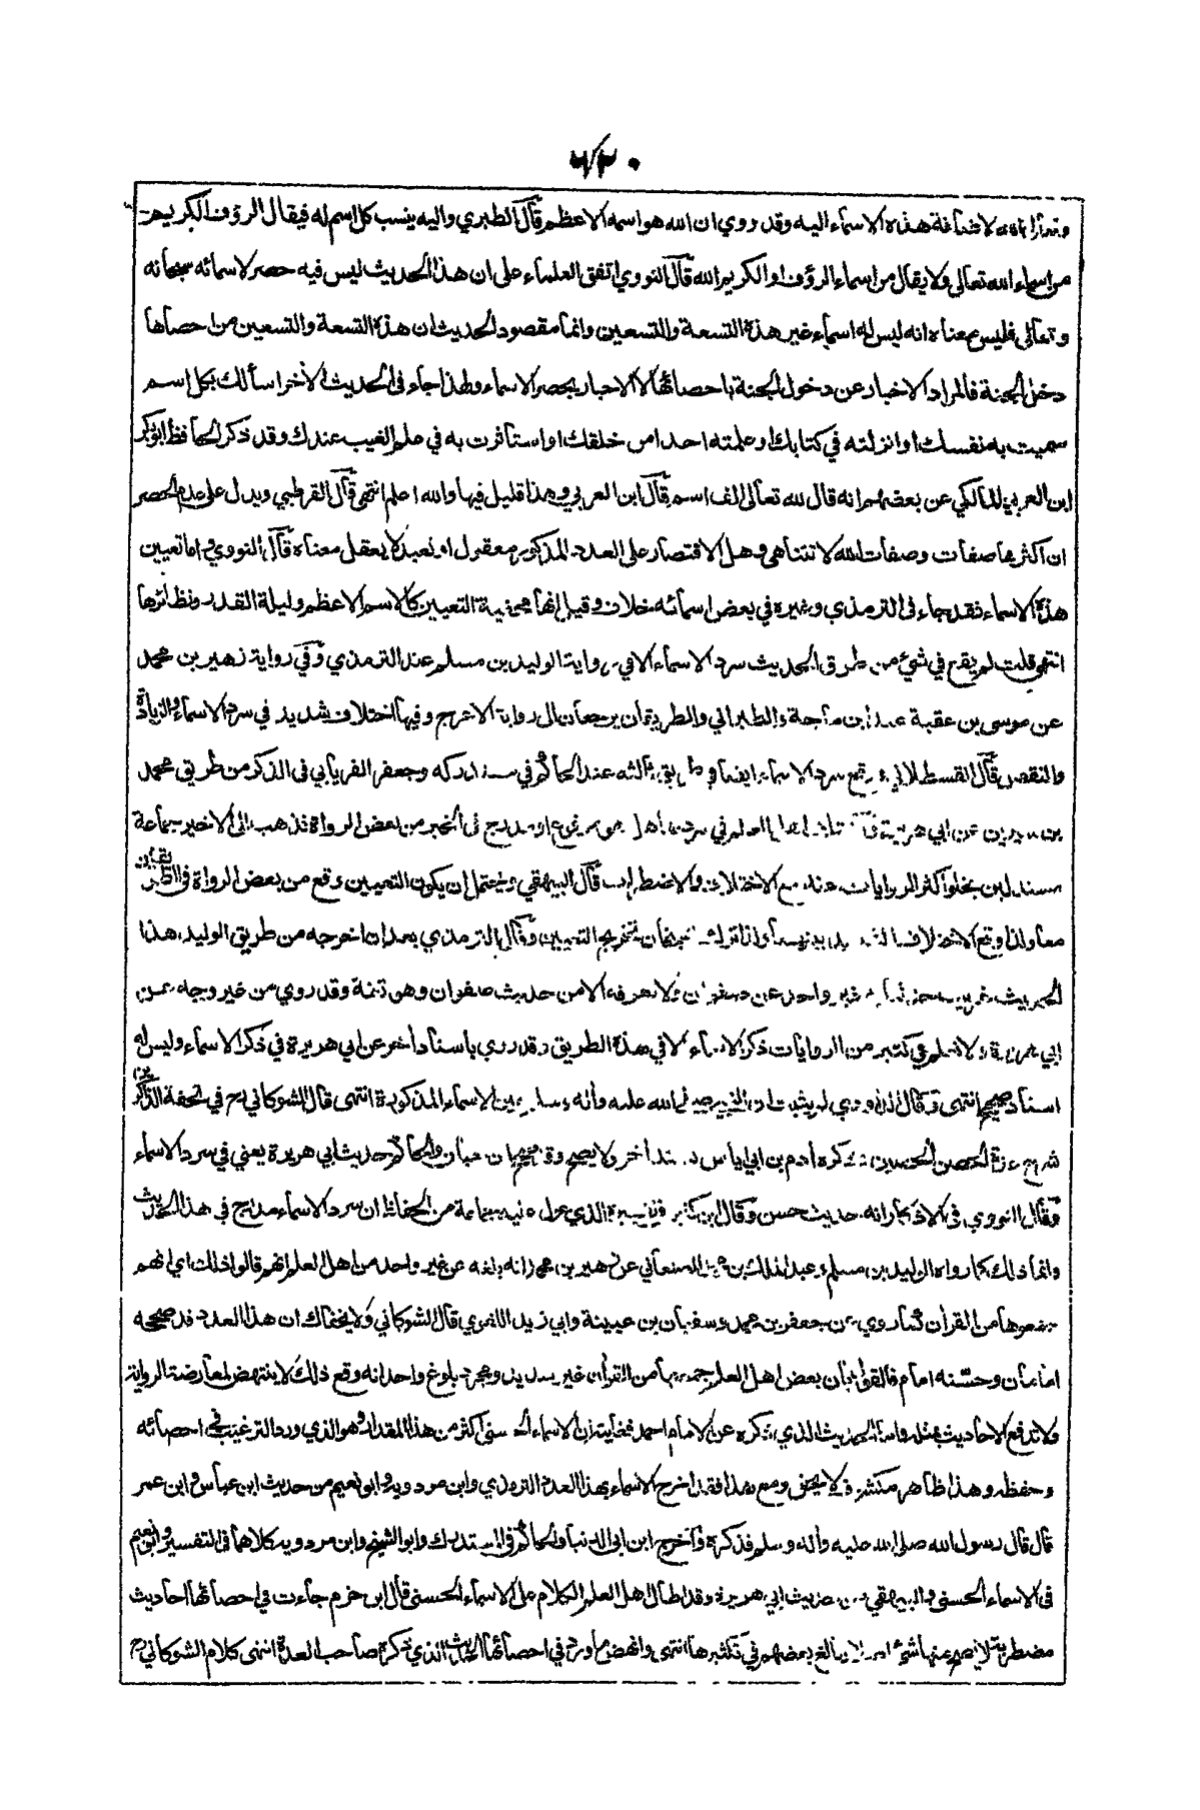 لاضافة هذه الاسماء اليه وقد روي ان الله هو اسمه الاعظم قال الطبري واليه ينسب كل اسم له فيقال الرؤف الكريم
من اسماء الله تعالى ولا يقال من اسماء الرؤف او الكريم الله قال النووي اتفق العلماء على ان هذا الحديث ليس فيه حصر لاسمائه سبحانه
وتعالى فليس معناه انه ليس له اسماء غير هذه التسعة والتسعين وانما مقصود الحديث ان هذه التسعة والتسعين من احصاها
دخل الجنة فالمراد الاخبار عن دخول الجنة باحصائها لا الاخبار بحصر الاسماء ولهذا جاء في الحديث الاخر اسألك بكل اسم
سميت به نفسك او انزلته في كتابك او علمته احدا من خلقك او استأثرت به في علم الغيب عندك وقد ذكر الحافظ ابو بكر
ابن العربي المالكي عن بعضهم انه قال لله تعالى الف اسم قال ابن العربي وهذا قليل فيها والله اعلم انتهى قال القرطبي ويدل على عدم الحصر
ان اكثرها صفات وصفات الله لا تتناهى وهل الاقتصار على العدد المذكور معقول او تعبد لا يعقل معناه قال النووي واما تعيين
هذه الاسماء فقد جاء في الترمذي وغيره في بعض اسمائه خلاف وقيل انها مخفية التعيين كالاسم الاعظم وليلة القدر ونظائرها
انتهى قلت لم يقع في شيء من طرق الحديث سرد الاسماء الا في رواية الوليد بن مسلم عند الترمذي وفي رواية زهير بن محمد
عن موسى بن عقبة عند ابن ماجة والطبراني والطريقان يرجعان الى رواية الاعرج وفيها اختلاف شديد في سرد الاسماء والزيادة
والنقص قال القسطلاني ووقع سرد الاسماء ايضا في طريق ثالثة عند الحاكم في مستدركه وجعفر الفريابي في الذكر من طريق محمد
بن سيرين عن ابي هريرة العلماء في سردها هل هو مرفوع او مدرج في الخبر من بعض الرواة فذهب الى الاخير جماعة
اكثر الروايات عنه مع الاختلاف والاضطراب قال البيهقي ويحتمل ان يكون التعيين وقع من بعض الرواة في الطريقين
معا ولذا وقع الاختلاف الشديد بينهما ولذا ترك الشيخان تخريج التعيين وقال الترمذي بعد ان اخرجه من طريق الوليد هذا
الحديث غريب حدثنا به غير واحد عن صفوان ولا نعرفه الا من حديث صفوان وهو ثقة وقد روي من غير وجه عن
ابي هريرة ولا نعلم في كثير من الروايات ذكر الاسماء الا في هذه الطريق وقد روي باسناد اخر عن ابي هريرة في ذكر الاسماء وليس له
اسناد صحيح انتهى وقال الداودي لم يثبت ان النبي صلى الله عليه وآله وسلم عين الاسماء المذكورة انتهى قال الشوكاني رح في تحفة الذاكرين
شرح عدة الحصن الحصين ذكره ادم بن ابي اياس بسند اخر ولا يصح وقد صححها ابن حبان والحاكم حديث ابي هريرة يعني في سرد الاسماء
وقال النووي في الاذكار انه حديث حسن وقال ابن كثير في تفسيره الذي عول عليه جماعة من الحفاظ ان سرد الاسماء مدرج في هذا الحديث
وانما ذلك كما رواه الوليد بن مسلم وعبد الملك بن محمد الصنعاني عن زهير بن محمد انه بلغه عن غير واحد من اهل العلم انهم قالوا ذلك اي انهم
جمعوها من القرآن كما روي عن جعفر بن محمد وسفيان بن عيينة وابي زيد اللغوي قال الشوكاني ولا يخفاك ان هذا العدد قد صححه
امامان وحسّنه امام فالقول بان بعض اهل العلم جمعها من القرآن غير سديد ومجرد بلوغ واحد انه وقع ذلك لا ينتهض لمعارضة الرواية
ولا تدفع الاحاديث بمثله واما الحديث الذي ذكره عن الامام احمد فغايته ان الاسماء الحسنى اكثر من هذا المقدار وهو الذي ورد الترغيب في احصائه
وحفظه وهذا ظاهر مكشوف لا يخفى ومع هذا فقد اخرج الاسماء بهذا العدد الترمذي وابن مردويه وابو نعيم من حديث ابن عباس وابن عمر
قال قال رسول الله صلى الله عليه وآله وسلم فذكره واخرج ابن ابي الدنيا والحاكم في المستدرك وابو الشيخ وابن مردويه كلاهما في التفسير وابو نعيم
في الاسماء الحسنى والبيهقي من حديث ابي هريرة وقد اطال اهل العلم الكلام على الاسماء الحسنى قال ابن حزم جاءت في احصائها احاديث
مضطربة لا يصح منها شيء اصلا وبالغ بعضهم في تكثيرها انتهى وانهض ما ورد في احصائها الحديث الذي ذكره صاحب العدة انتهى كلام الشوكاني رح